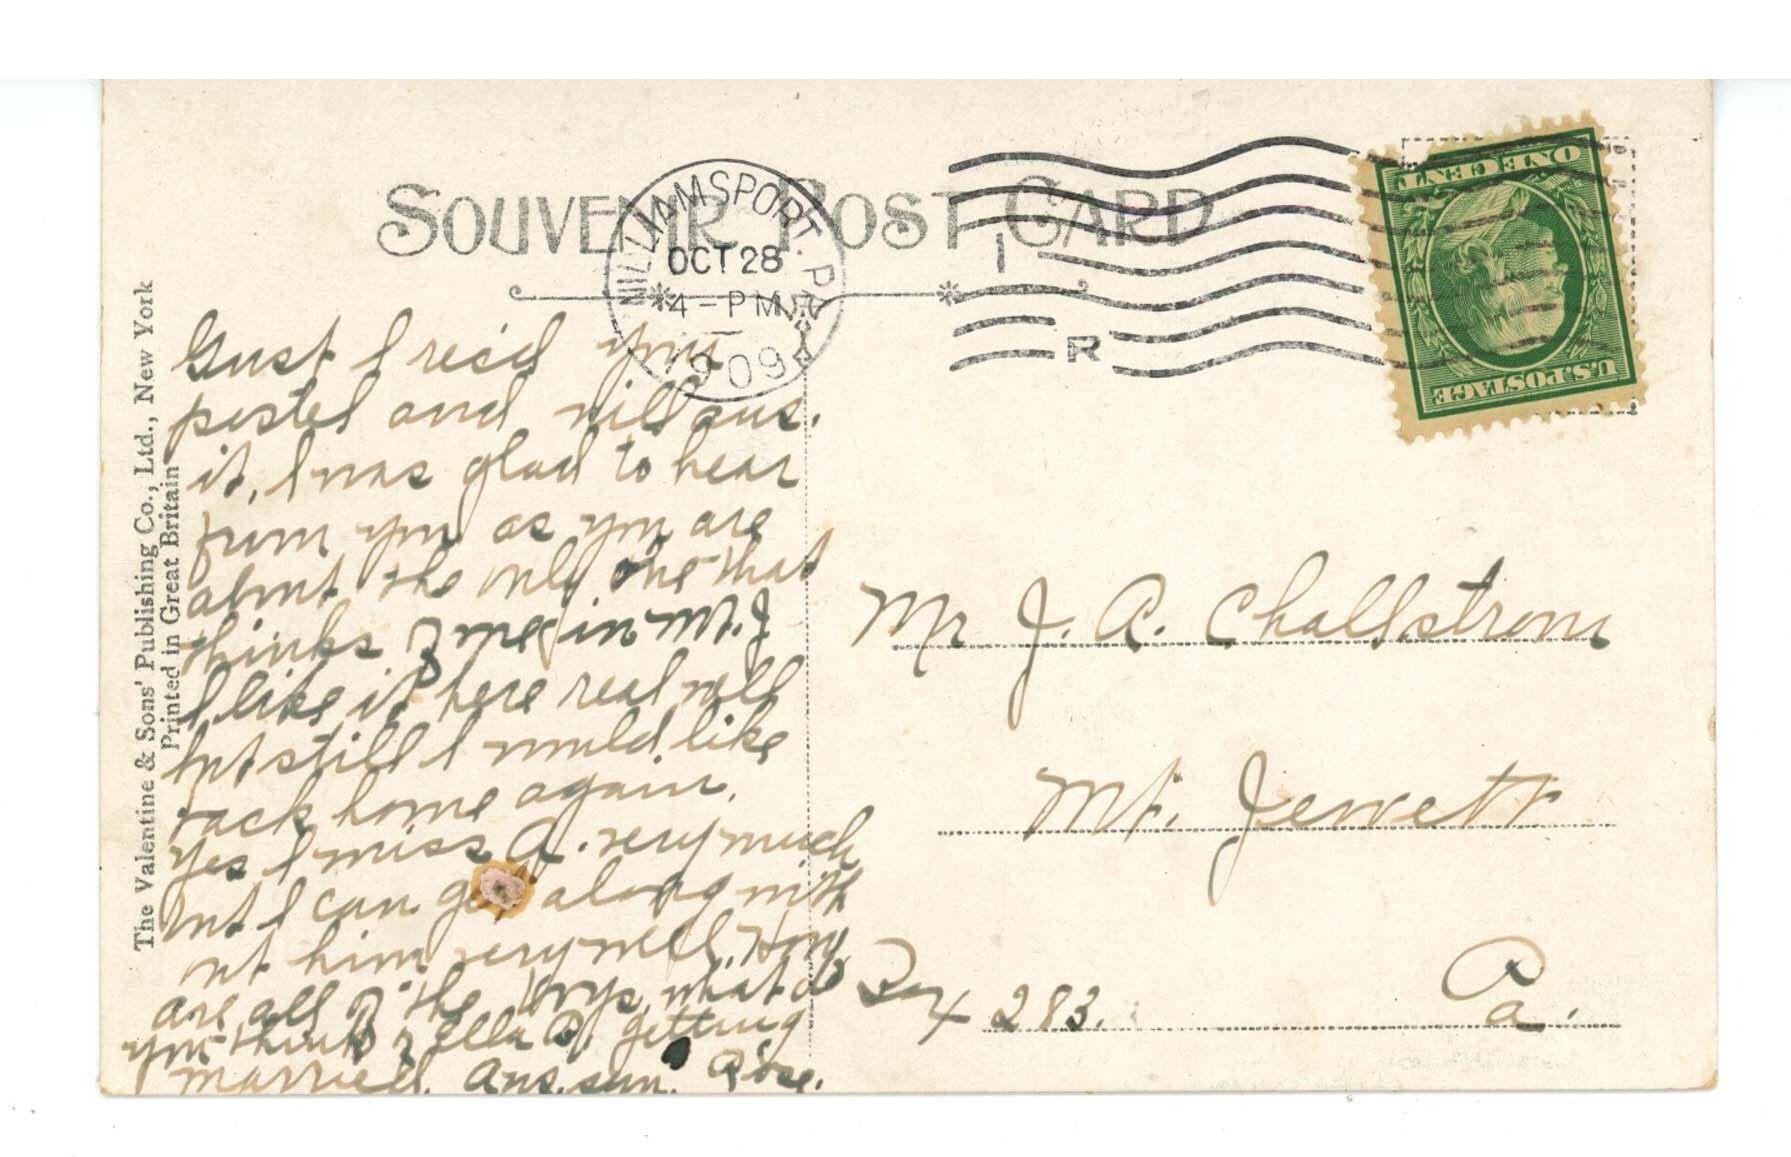 SOUVENIR POST CARD
WILLIAMSPORT. PA.
OCT 28
4 - PM
1909
1
R
ONE CENT
U.S. POSTAGE
The Valentine & Sons' Publishing Co., Ltd., New York
Printed in Great Britain
Gust I rec'd your
postel and will ans.
it, I was glad to hear
from you as you are
about the only one that
thinks of me
I like it here real well
but still I would like
back home again.
Yes I miss A. very much
but I can get along with
out him very well, How
are all of the boys, what do
you think of Ella D. getting
married. Ans. soon. Rose.
Mr J. A. Challstrom
Mt. Jewett
Box 283. Pa.